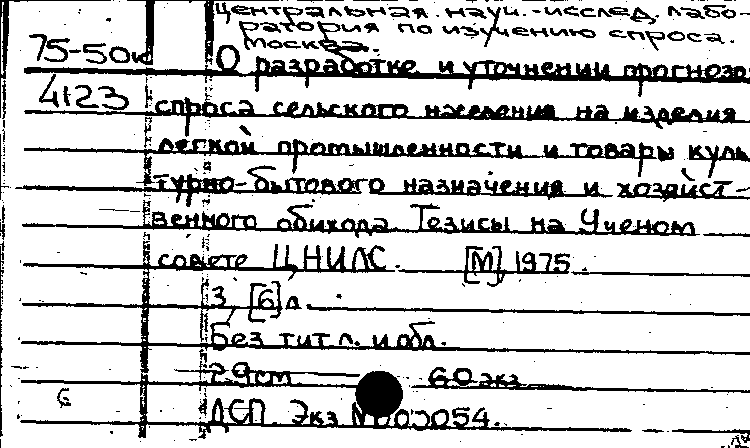 Центральная научн.-исслед. лабо-
ратория по изучению спроса.
Москва.
75-50к
О разработке и уточнении прогнозо
4123
спроса сельского населения на изделия
легкой промышленности и товары куль
турно-бытового назначения и хозяйст-
венного обихода. Тезисы на Ученом
совете ЦНИЛС. [М], 1975.
3, [6] л.
Без тит. л. и обл.
29 см 60 экз
ДСП. Экз №000054.